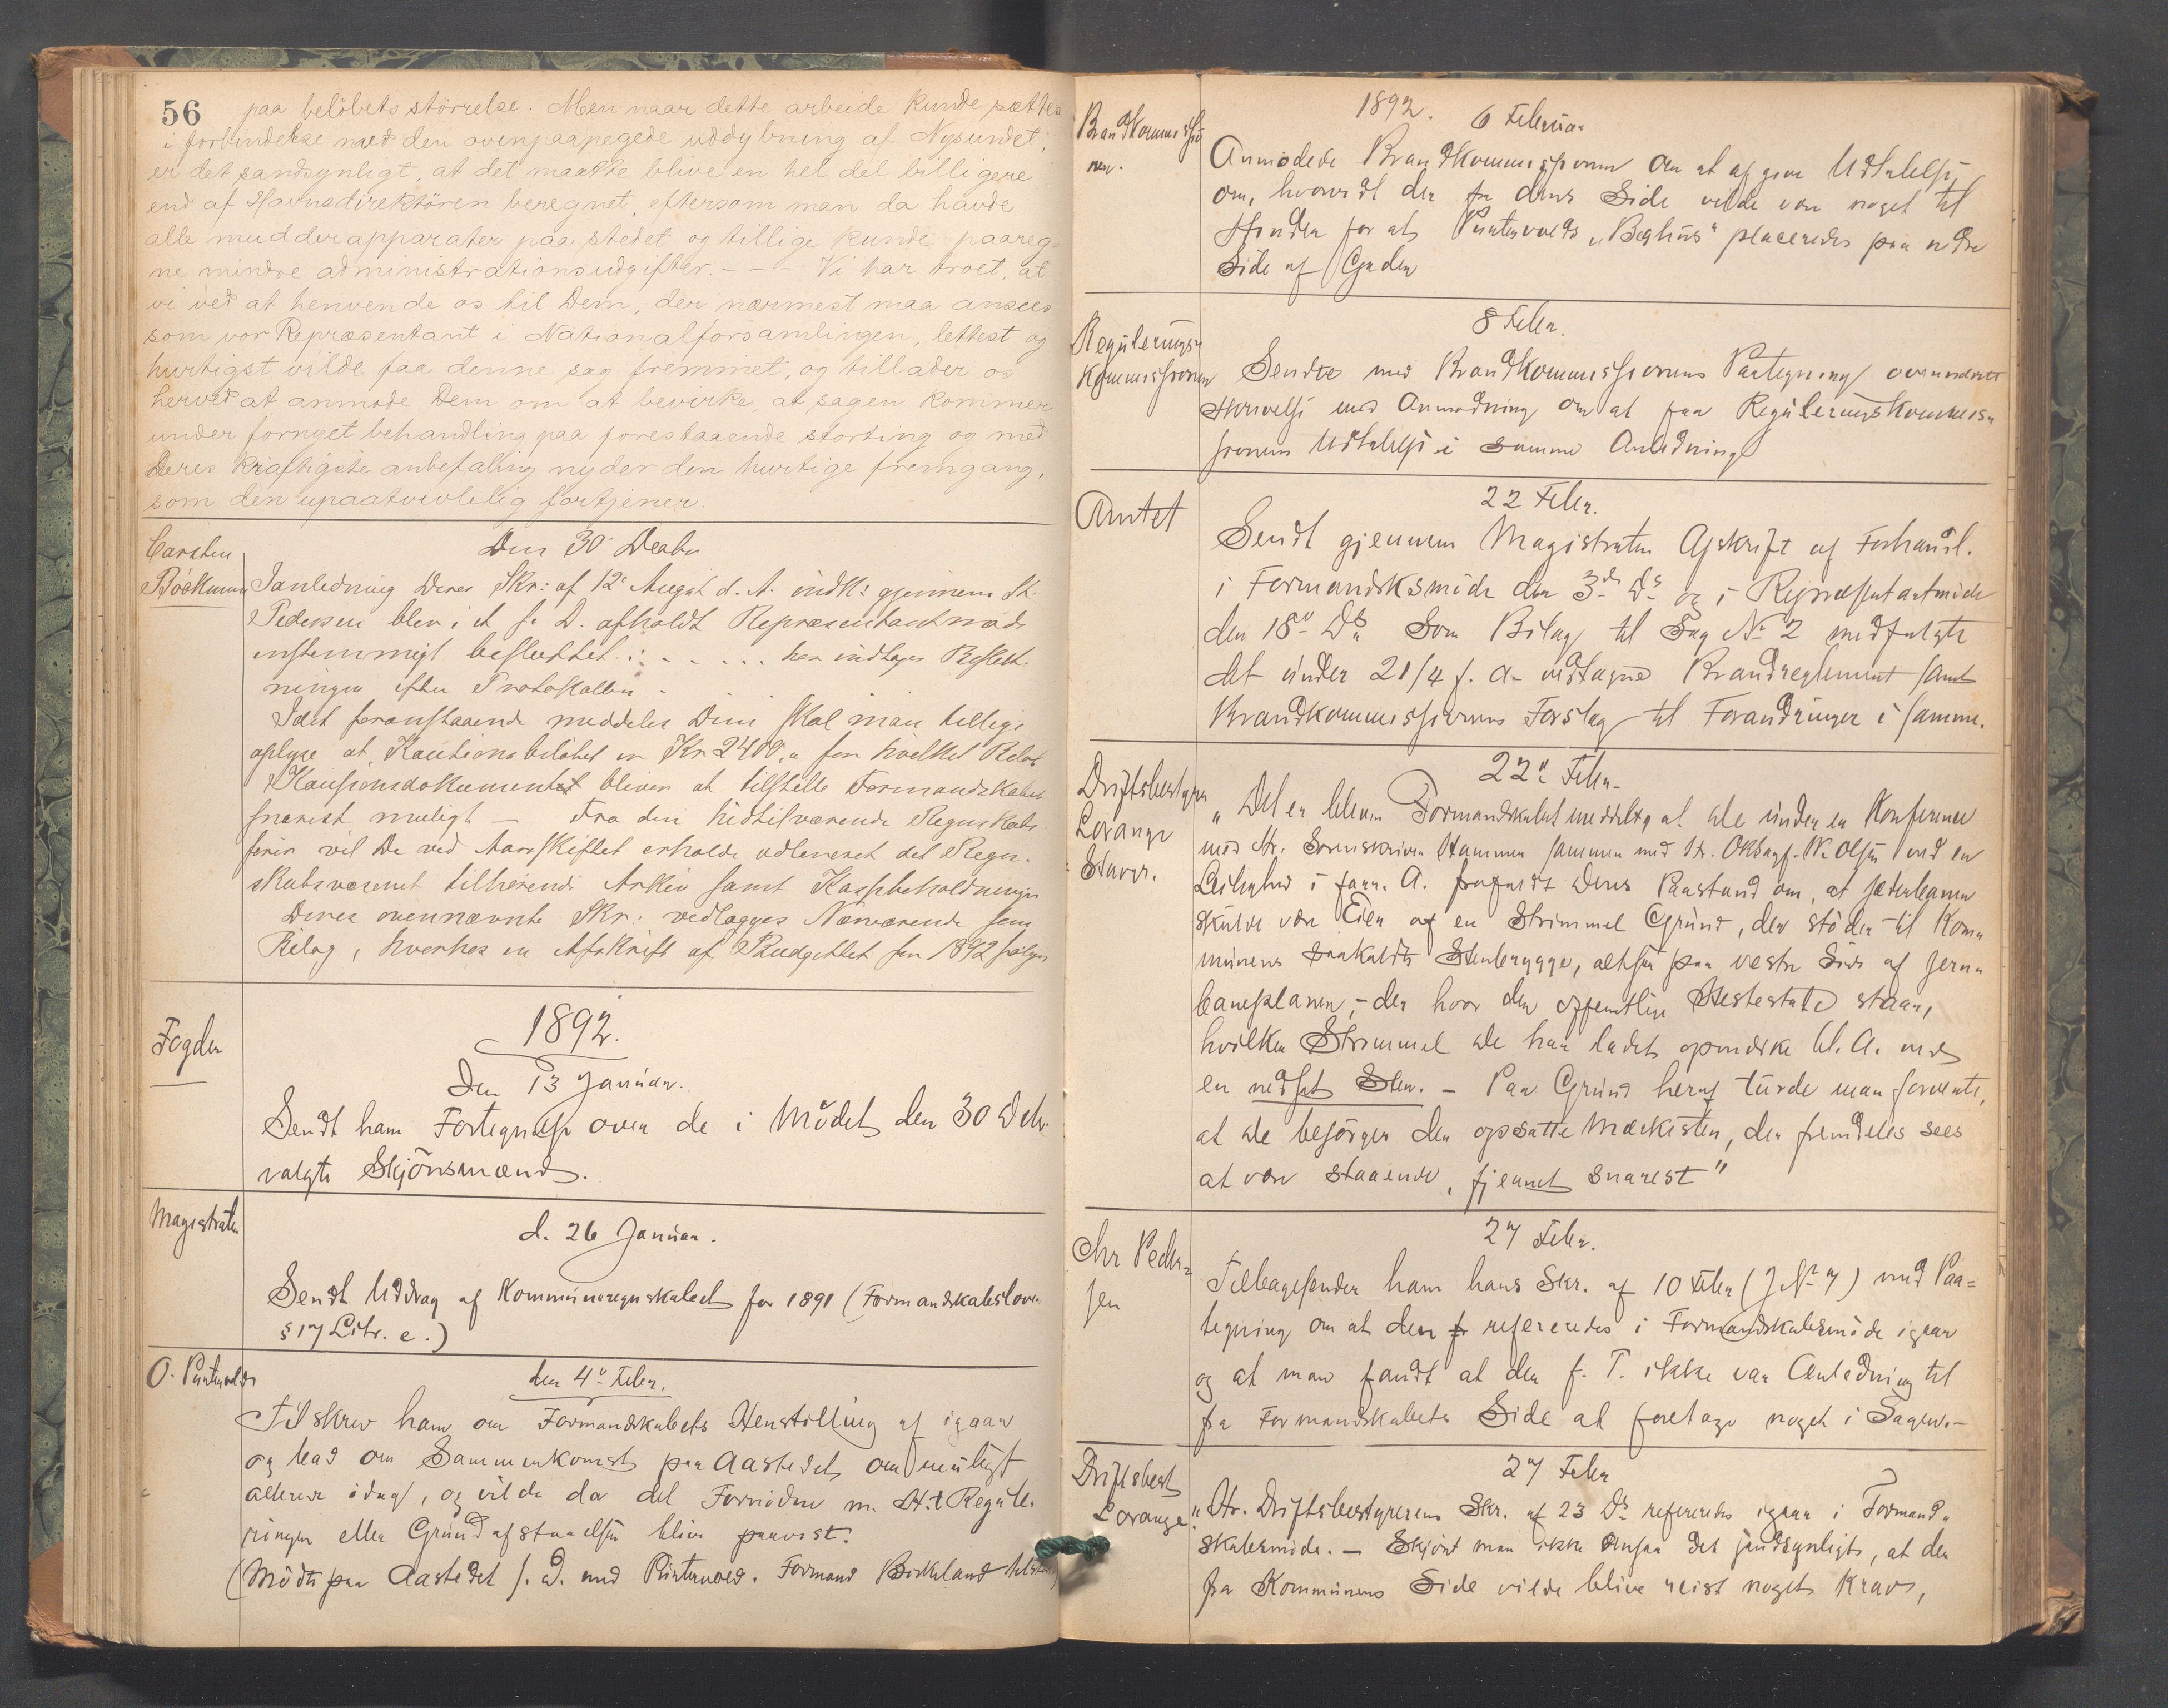 56
paa beløbets størrelse. Men naar dette arbeide kunde sættes
i forbindelse med den ovenpaapegede uddybning af Nysundet,
er det sandsynligt, at det maatte blive en hel del billigere
end af Havnedirektören beregnet, eftersom man da havde
alle mudderapparater paa stedet og tillige kunde paareg-
ne mindre administrationsudgifter. - - - Vi har troet, at
vi ved at henvende os til Dem, der nærmest maa ansees
som vor Repræsentant i Nationalforsamlingen, lettest og
hurtigst vilde faa denne sag fremmet, og tillader os
herved at anmode Dem om at bevirke, at sagen kommer
under fornyet behandling paa forestaaende storting og med
Deres kraftigste anbefaling nyder den hurtige fremgang,
som den upaatvivlelig fortjener.
Carsten
Böckmann
Den 30 Decbr
I anledning Deres Skr: af 12 August d. A. indk: gjennem St.
Pedersen blev i et f. D. afholdt Repræsentantmøde
enstemmigt besluttet : - - . . . her indtages Beslut-
ningen efter Protokollen -
Idet foranstaaende meddeles Dem skal man tillige
oplyse at Kautionsbeløbet er Kr 2400,, for hvilket Beløb
Kautionsdokumentet bliver at tilstille Formandskabet
snarest muligt — Fra den hidtilværende Regnskabs
fører vil De ved Aarsskiftet erholde udleveret det Regn-
skabsvæsenet tilhørende Arkiv samt Kassebeholdningen
Deres ovennævnte Skr: vedlægges Nærværende som
Bilag, hvorhos en Afskrift af Budgettet for 1892 følger
Fogden
1892.
Den 13 Januar.
Sendt ham Fortegnelse over de i Mödet den 30 Decbr.
valgte Skjönsmænd.
Magistraten
d. 26 Januar.
Sendt Uddrag af Kommuneregnskabet for 1891 (Formandskabsloven
§ 17 Litr. e.)
O. Puntervold
den 4 Febr.
Tilskrev ham om Formandskabets Henstilling af igaar
og bad om Sammenkomst paa Aastedet om muligt
allerede idag, og vilde da det Fornödne m. H. t Regule-
ringen eller Grundafstaaelsen blive paavist.
(Mödte paa Aastedet s. D. med Puntervold. Formand Birkeland
Brandkommissio
nen.
1892. 6 Februar
Anmodede Brandkommissionen om at afgive Udtalelse
om, hvorvidt der fra dens Side vilde være noget til
Hinder for at Puntervolds „Beghus" placeredes paa nedre
Side af Gaden
Regulerings-
kommissionen
8 Febr.
Sendte med Brandkommissionens Paategning ovennævnte
Skrivelse med Anmodning om at faa Reguleringskommis-
sionens Udtalelse i samme Anledning
Amtet
22 Febr.
Sendt gjennem Magistraten Afskrift af Forhandl.
i Formandsksmöde den 3 Ds og i Repræsentantmöde
den 18 Ds Som Bilag til Sag No 2 medfulgte
det under 21/4 f. A. vedtagne Brandreglement samt
Brandkommissionens Forslag til Forandringer i samme.
Driftsbestyrer
Lorange
Stavgr.
22 Febr.
„Det er bleven Formandskabet meddelt, at De under en Konferance
med Hr. Sorenskriver Hammer sammen med Hr. Olsen ved en
Leilighed i forr. A. fremholdt Deres Paastand om, at Jæderbanen
skulde være Eier af en Strimmel Grund, der stöder til Kom-
munens saakaldte Stenbrygge, altsaa paa vestre Side af Jern-
baneplanen, - der hvor den offentlige Hestestald staar,
hvilken Strimmel De har ladet opmærke bl. A. med
en nedsat Sten. — Paa Grund heraf turde man forvente,
at De besörger den opsatte Mærkesten, der fremdeles sees
at være staaende, fjernet snarest"
Chr Peder-
sen
27 Febr.
Tilbagesender ham hans Skr. af 10 Febr (J No 7) med Paa-
tegning om at den refereredes i Formandskabsmöde igaar
og at man fandt at der f. T. ikke var Anledning til
fra Formandskabets Side at foretage noget i Sagen.—
Driftsbest
Lorange
27 Febr
„Hr. Driftsbestyrerens Skr. af 23 Ds refereredes igaar i Formand-
skabsmöde. — Skjönt man ikke ansaa det sandsynligt, at der
fra Kommunens Side vilde blive reist noget Krav,